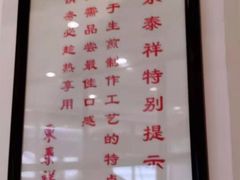 泰祥特别提示
于生煎制作工艺的特
需品尝最佳口感
必趁热享用
东泰祥